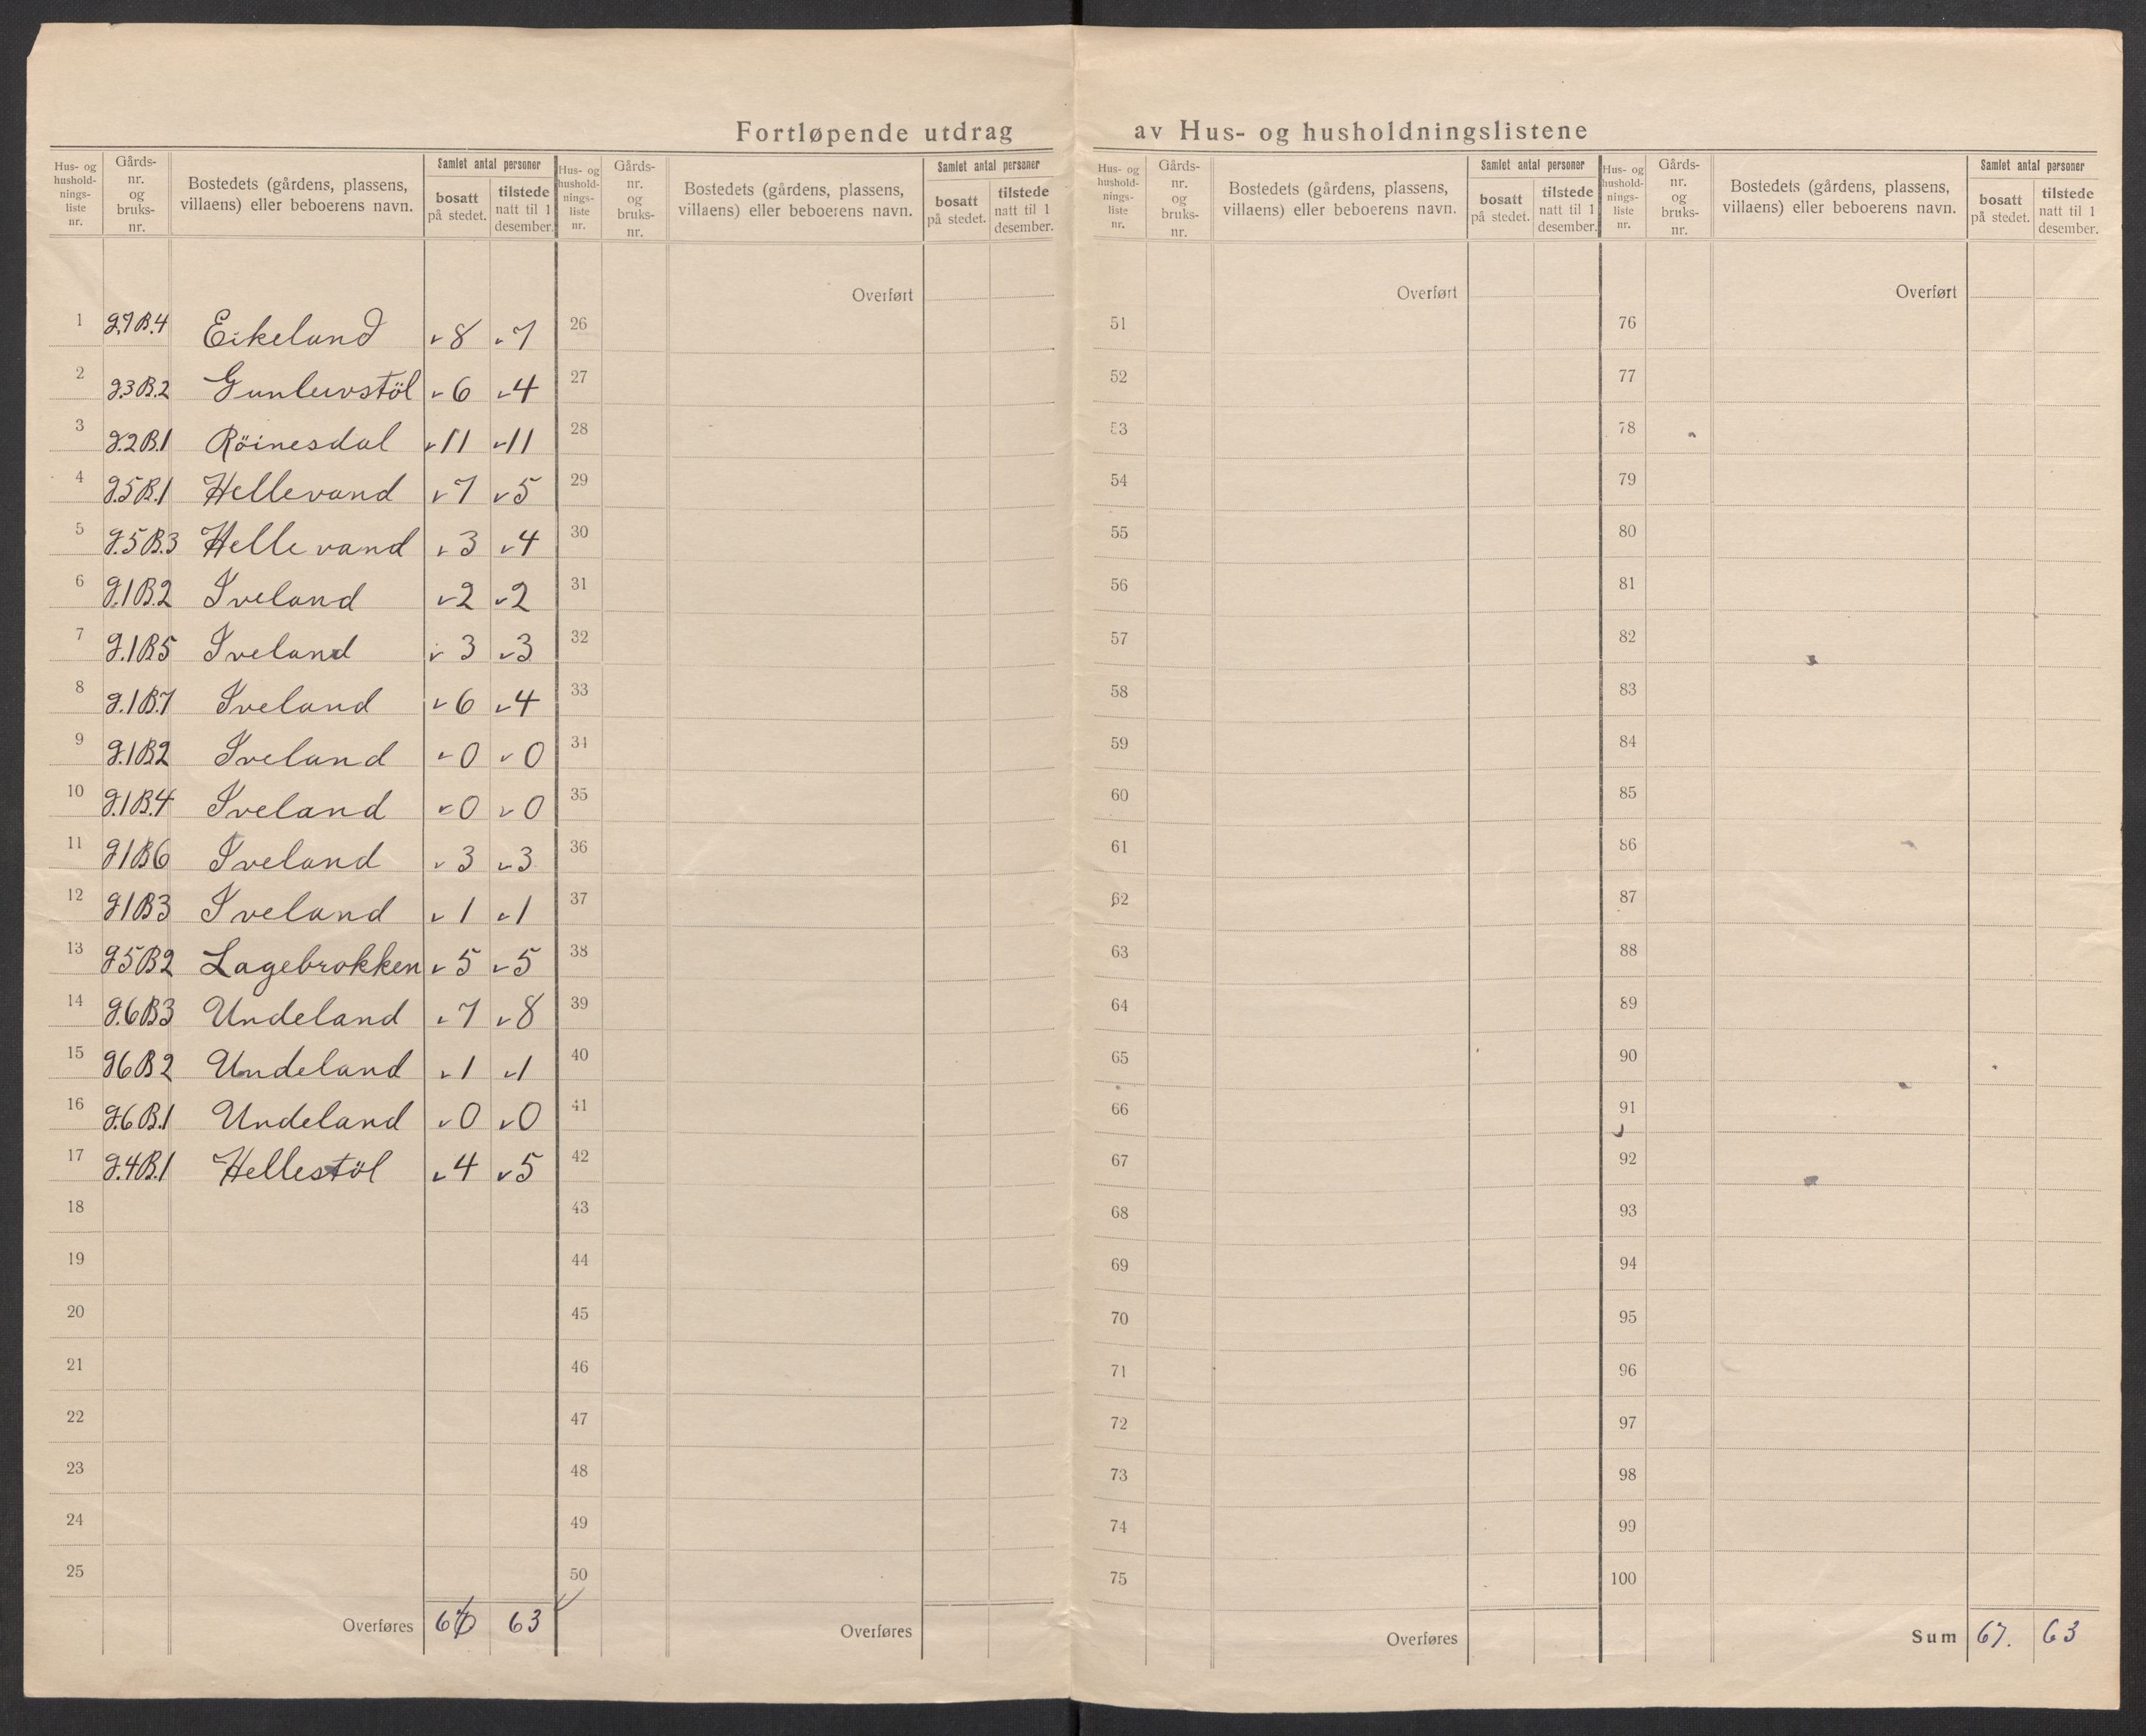 Fortløpende utdrag av Hus- og husholdningslistene
Hus- og hushold-nings-liste nr. | Gårds-nr. og bruks-nr. | Bostedets (gårdens, plassens, villaens) eller beboerens navn. | Samlet antal personer | bosatt på stedet. | tilstede natt til 1 desember.
Hus- og hushold-nings-liste nr. | Gårds-nr. og bruks-nr. | Bostedets (gårdens, plassens, villaens) eller beboerens navn. | Samlet antal personer | bosatt på stedet. | tilstede natt til 1 desember.
Hus- og hushold-nings-liste nr. | Gårds-nr. og bruks-nr. | Bostedets (gårdens, plassens, villaens) eller beboerens navn. | Samlet antal personer | bosatt på stedet. | tilstede natt til 1 desember.
Hus- og hushold-nings-liste nr. | Gårds-nr. og bruks-nr. | Bostedets (gårdens, plassens, villaens) eller beboerens navn. | Samlet antal personer | bosatt på stedet. | tilstede natt til 1 desember.
Overført Overført Overført
1 g.7 B.4 Eikeland 8 7 26 51 76
2 g.3 B.2 Gunleuvstöl 6 4 27 52 77
3 g.2 B.1 Röinesdal 11 11 28 53 78
4 g.5 B.1 Hellevand 7 5 29 54 79
5 g.5 B.3 Hellevand 3 4 30 55 80
6 g.1 B.2 Iveland 2 2 31 56 81
7 g.1 B5 Iveland 3 3 32 57 82
8 g.1 B.7 Iveland 6 4 33 58 83
9 g.1 B2 Iveland 0 0 34 59 84
10 g.1 B.4 Iveland 0 0 35 60 85
11 g1 B6 Iveland 3 3 36 61 86
12 g1 B3 Iveland 1 1 37 62 87
13 g5 B2 Lagebrokken 5 5 38 63 88
14 g.6 B3 Undeland 7 8 39 64 89
15 g6 B2 Undeland 1 1 40 65 90
16 g.6 B.1 Undeland 0 0 41 66 91
17 g.4 B.1 Hellestöl 4 5 42 67 92
18 43 68 93
19 44 69 94
20 45 70 95
21 46 71 96
22 47 72 97
23 48 73 98
24 49 74 99
25 50 75 100
Overføres 67 63 Overføres Overføres Sum 67. 63